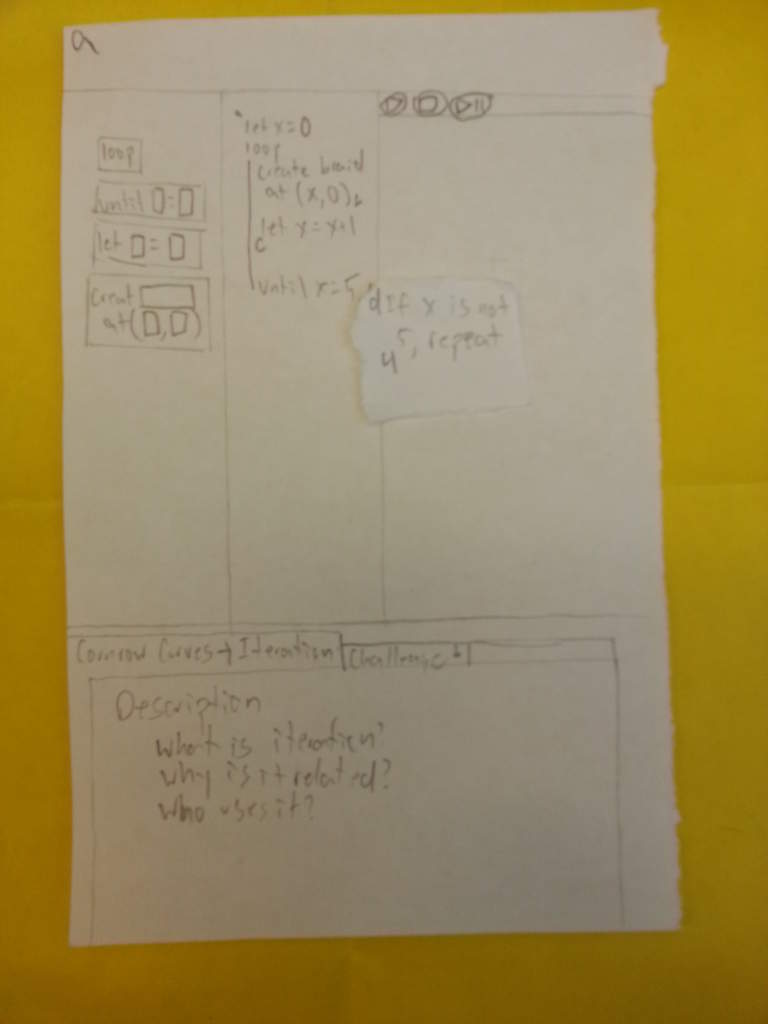 a
loop
until □=□
let □=□
creat
at(□,□)
let x=0
loop
create braid
at (x,0)b
let x=x+1
c
until x=5
d If x is not
5, repeat
4
Cornrow Curves → Iteration
Challenge b
Description
what is iteration?
why is it related?
who uses it?